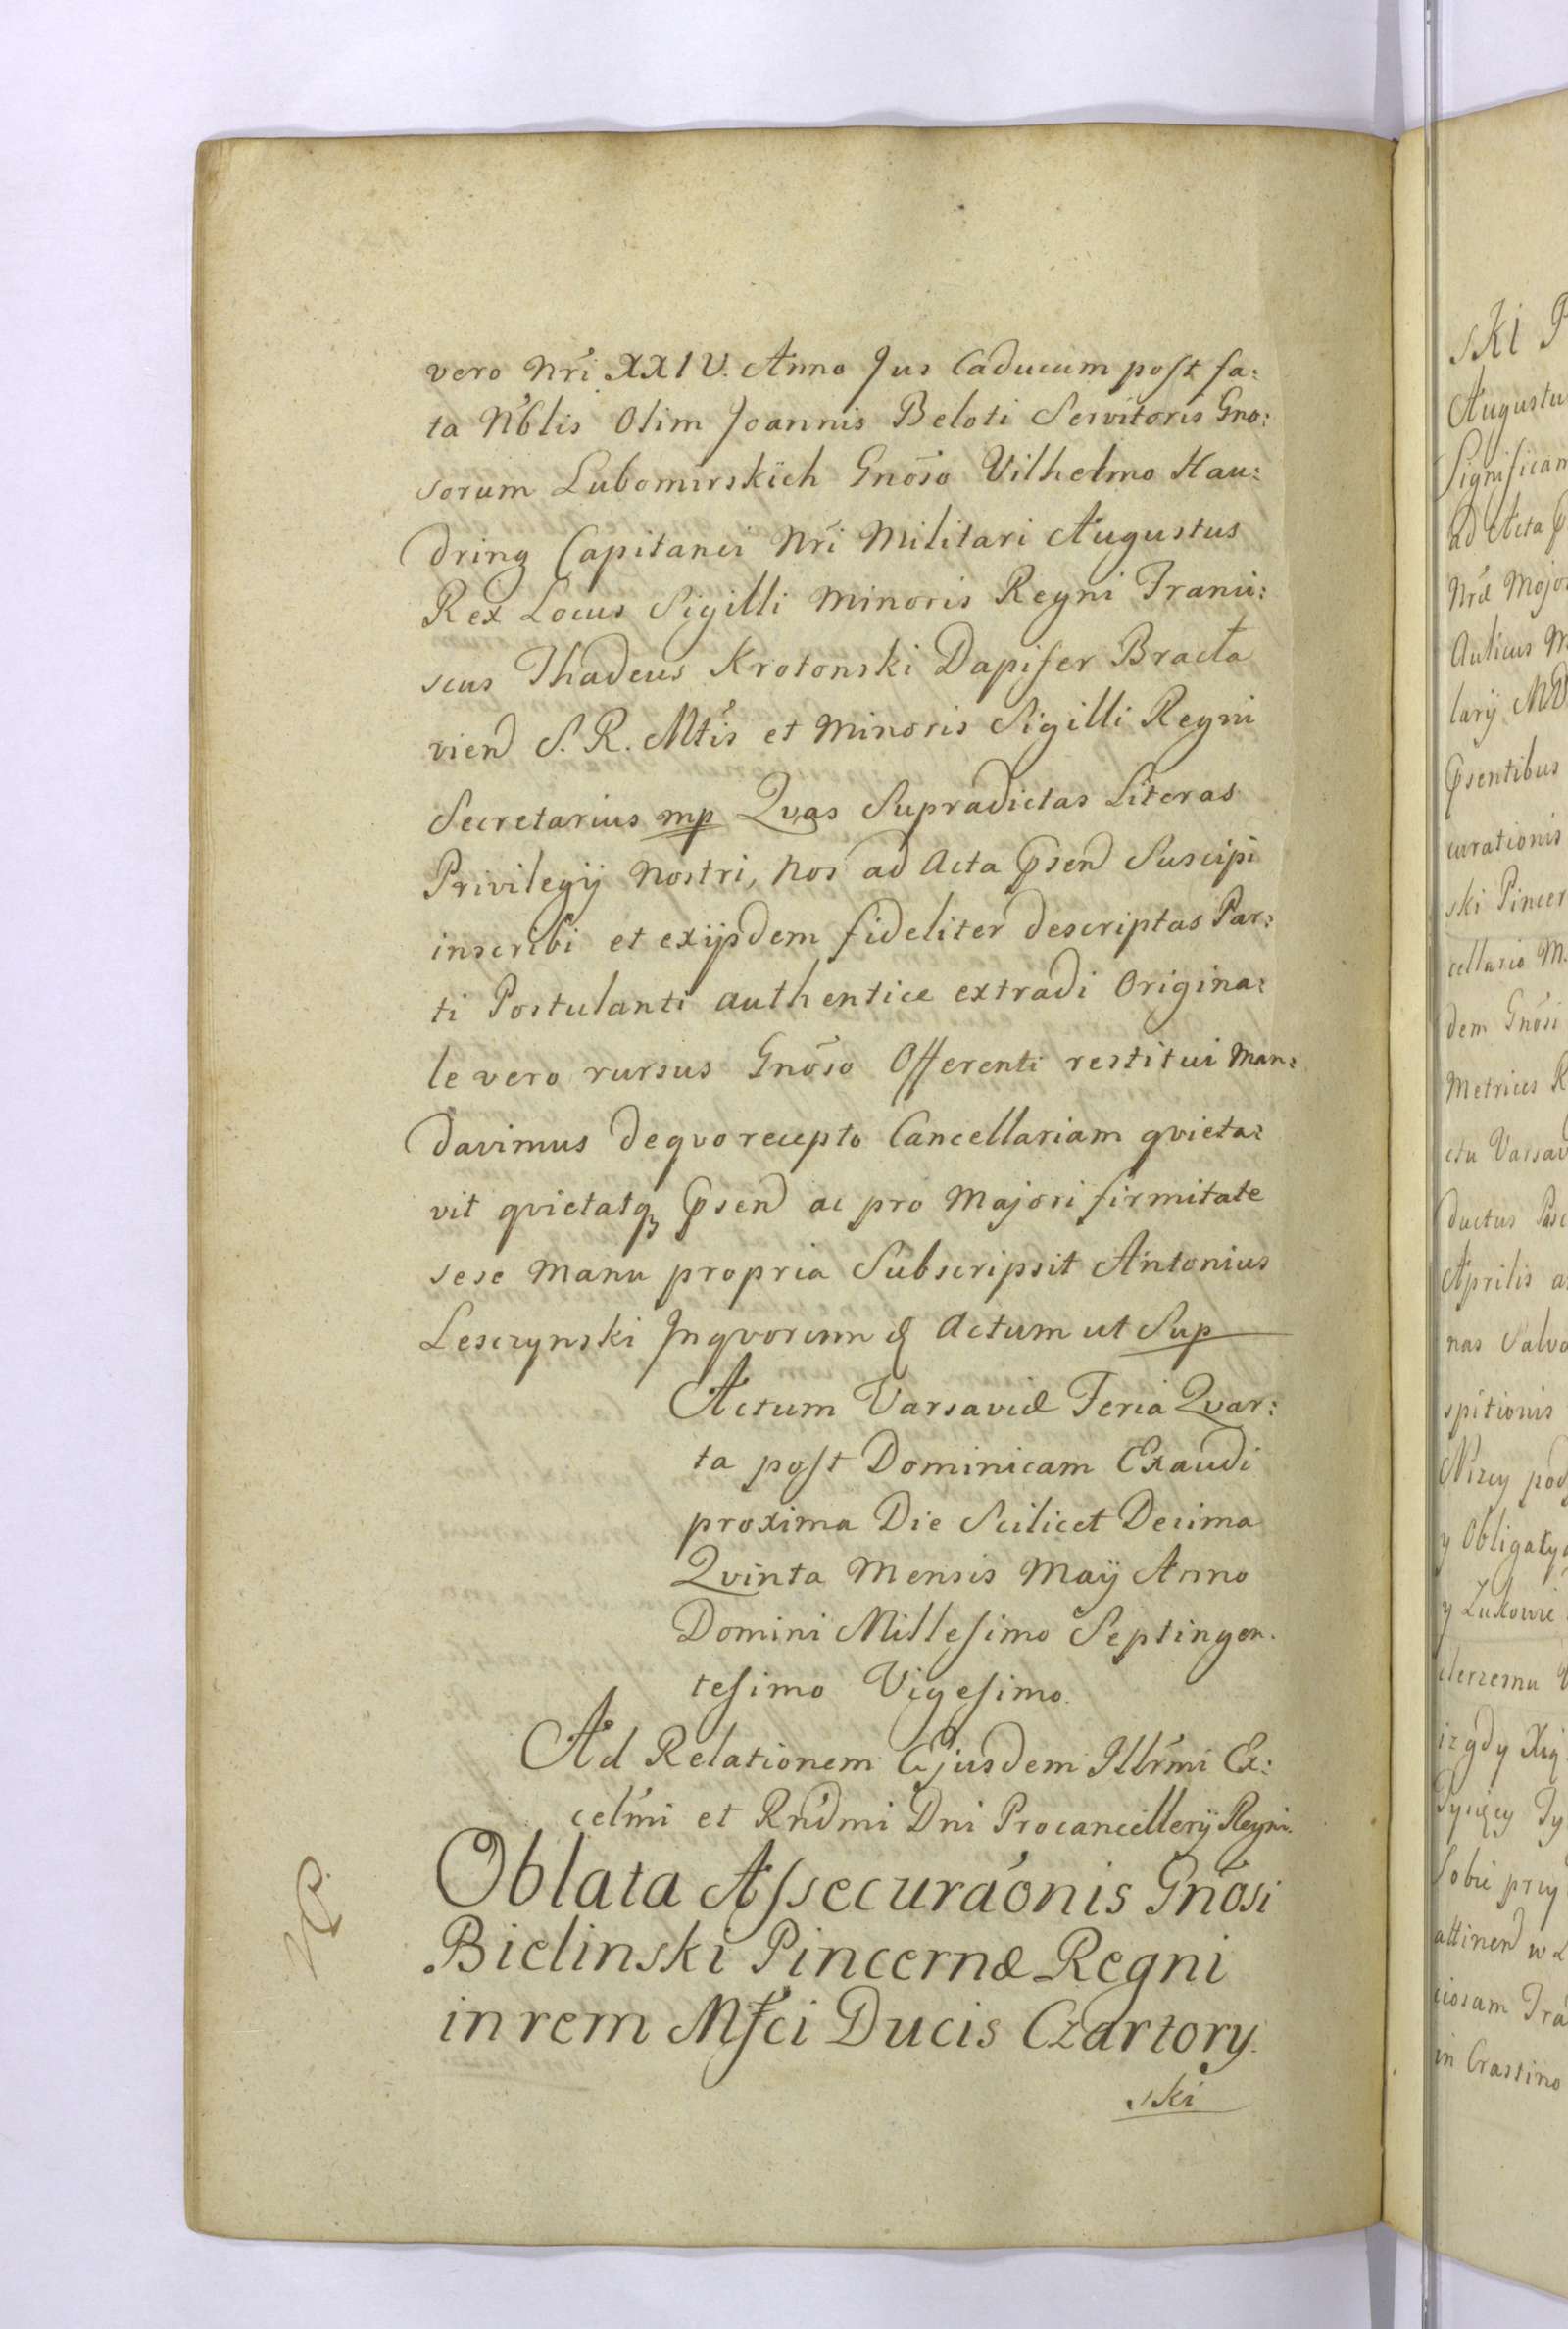 vero Nrí XXIV. Anno Jus Caducum post fa:
ta Nblis Olim Joannis Beloti Servitoris Gno:
sorum Lubomirskich Gnõso Vilhelmo Hau:
dring Capitanei Nrí Militari Augustus
Rex Locus Sigilli Minoris Regni Franci:
scus Thadeus Krotonski Dapifer Bracta
vien S. R. Mtis et Minoris Sigilli Regni
Secretarius mp Qvas Supradictas Literas
Privilegij Nostri, Nos ad Acta Psen Suscipi
inscribi et exijsdem fideliter descriptas Par:
ti Postulanti authentice extradi Origina:
le vero rursus Gnõso Offerenti restitui Man:
davimus deqvo recepto Cancellariam qvieta:
vit qvietatq Psen ac pro Majori firmitate
sese Manu propria Subscripsit Antonius
Lesczynski Jnqvorum & Actum ut Sup
Actum Varsaviæ Feria Qvar:
ta post Dominicam Exaudi
proxima Die Scilicet Decima
Qvinta Mensis Maij Anno
Domini Millesimo Septingen.
tesimo Vigesimo.
Ad Relationem Ejusdem Jllrmi Ex:
celmi et Rndmi Dni Procancellerij Regni.
Oblata Assecuraónis Gnõsi
Bielinski Pincernæ Regni
in rem Mfci Ducis Czartory.
ski
ski P
Augustu
Significam
ad Acta P
Nræ Major
Aulicus M
larij MD
Psentibus
curationis
ski Pincer
cellario M.
dem Gnõsi
Metrices R
ctu Varsav
ductus Pasc
Aprilis a
nas Salvo
spitionis
Nizey pod
y Obligaty
y Zukowie
izgdy Xią
Sobie przy
attinen w L
ciosam Tra
in Crastino